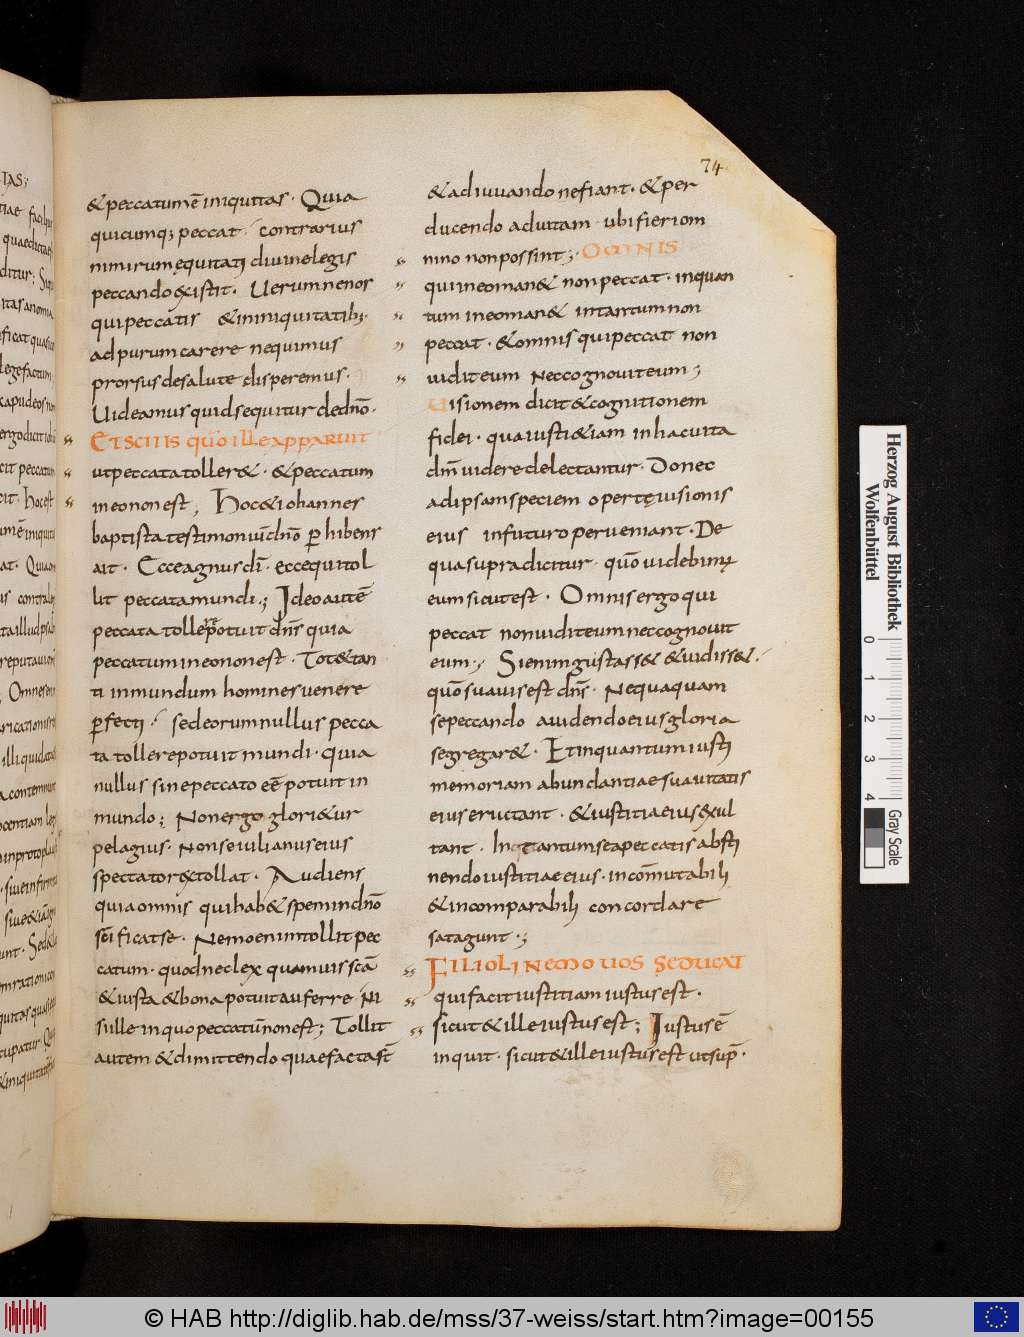 74
& peccatum ē iniquitas · Quia
quicumq; peccat · contrarius
nimirum ęquitati divine legis
peccando existit · Uerum ne nos
qui peccatis & in iniquitatib;
ad purum carere nequimus
prorsus de salute disperemus ·
Uideamus quid sequitur de dño ·
ET SCITIS quō ille apparuit
ut peccata toller& · & peccatum
in eo non est ; Hoc & iohannes
baptista testimoniū dño phibens
ait · Ecce agnus dī · ecce qui tol
lit peccata mundi ; Ideo autē
peccata tollere potuit dñs quia
peccatum in eo non est · Tot & tan
ti in mundum homines venere
pfecti · sed eorum nullus pecca
ta tollere potuit mundi · quia
nullus sine peccato eē potuit in
mundo ; Non ergo glori&ur
pelagius · Non se iulianus eius
spectator extollat · Audiens
quia omnis qui hab& spem in dño
scī ficat se · Nemo enim tollit pec
catum · quod nec lex quamvis scā
& iusta & bona potuit auferre · Ni
si ille in quo peccatū non est ; Tollit
autem & dimittendo quae facta st̄
& adiuuando ne fiant · & per
ducendo ad uitam ubi fieri om
nino non possint ; OMNIS
qui in eo man& non peccat · in quan
tum in eo man& in tantum non
peccat · & omnis qui peccat non
uidit eum nec cognouit eum ;
Uisionem dicit & cognitionem
fidei · qua iusti &iam in hac uita
dm̄ videre delectantur · Donec
ad ipsam speciem opertę uisionis
eius in futuro perueniant · De
qua supra dicitur · quō uidebim;
eum sicut est · Omnis ergo qui
peccat non uidit eum nec cognouit
eum ; Si enim gustass& & uidiss& ·
quō suauis est dñs · Nequaquam
se peccando a uidendo eius gloria
segregar& · Et in quantum iusti
memoriam abundantiae suauitatis
eius eructant · & iustitia eius exul
tant · In tantum se a peccatis absti
nendo iustitiae eius · incōmutabili
& incomparabili concordare
satagunt ·;
FILIOLI NEMO UOS SEDUCAT
qui facit iustitiam iustus est ·
sicut & ille iustus est ; Iustus ē
inquit · sicut & ille iustus est ut sup̄ ·
Herzog August Bibliothek
Wolfenbüttel
0 1 2 3 4
Gray Scale
© HAB http://diglib.hab.de/mss/37-weiss/start.htm?image=00155